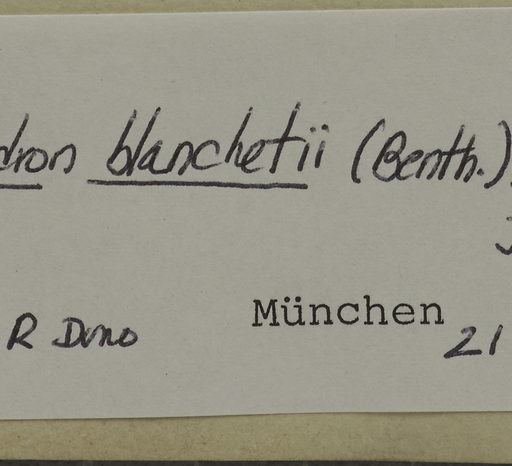 dron blanchetii (Benth.)
R Duno München 21